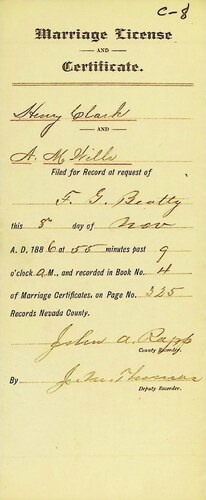 C-8
Marriage License
AND
Certificate.
Henry Clark
AND
A. M Wills
Filed for Record at request of
F. G. Beatty
this 8th day of Nov
A. D. 1886 at 55 minutes past 9
o'clock A.M., and recorded in Book No. 4
of Marriage Certificates, on Page No. 325
Records Nevada County.
John A. Rapp
County Recorder.
By John Thomas
Deputy Recorder.